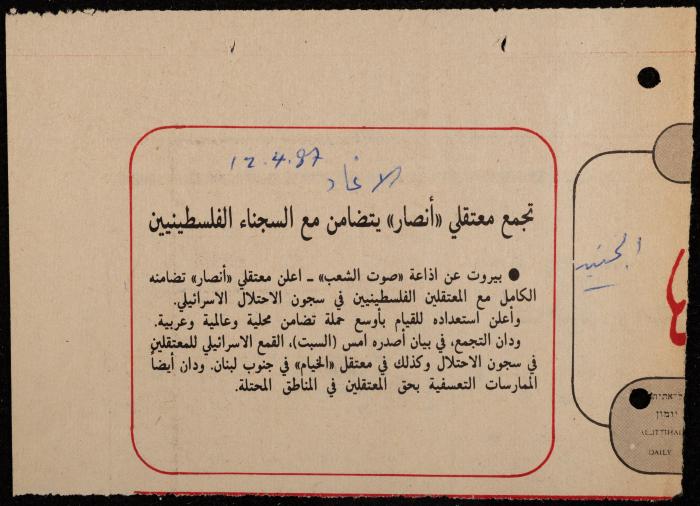 12.4.87
الاتحاد
تجمع معتقلي «أنصار» يتضامن مع السجناء الفلسطينيين
● بيروت عن اذاعة «صوت الشعب» ــ اعلن معتقلي «أنصار» تضامنه
الكامل مع المعتقلين الفلسطينيين في سجون الاحتلال الاسرائيلي.
وأعلن استعداده للقيام بأوسع حملة تضامن محلية وعالمية وعربية.
ودان التجمع، في بيان أصدره امس (السبت)، القمع الاسرائيلي للمعتقلين
في سجون الاحتلال وكذلك في معتقل «الخيام» في جنوب لبنان. ودان أيضاً
الممارسات التعسفية بحق المعتقلين في المناطق المحتلة.
الجنيد
יומון
ALITTIHAD
DAILY